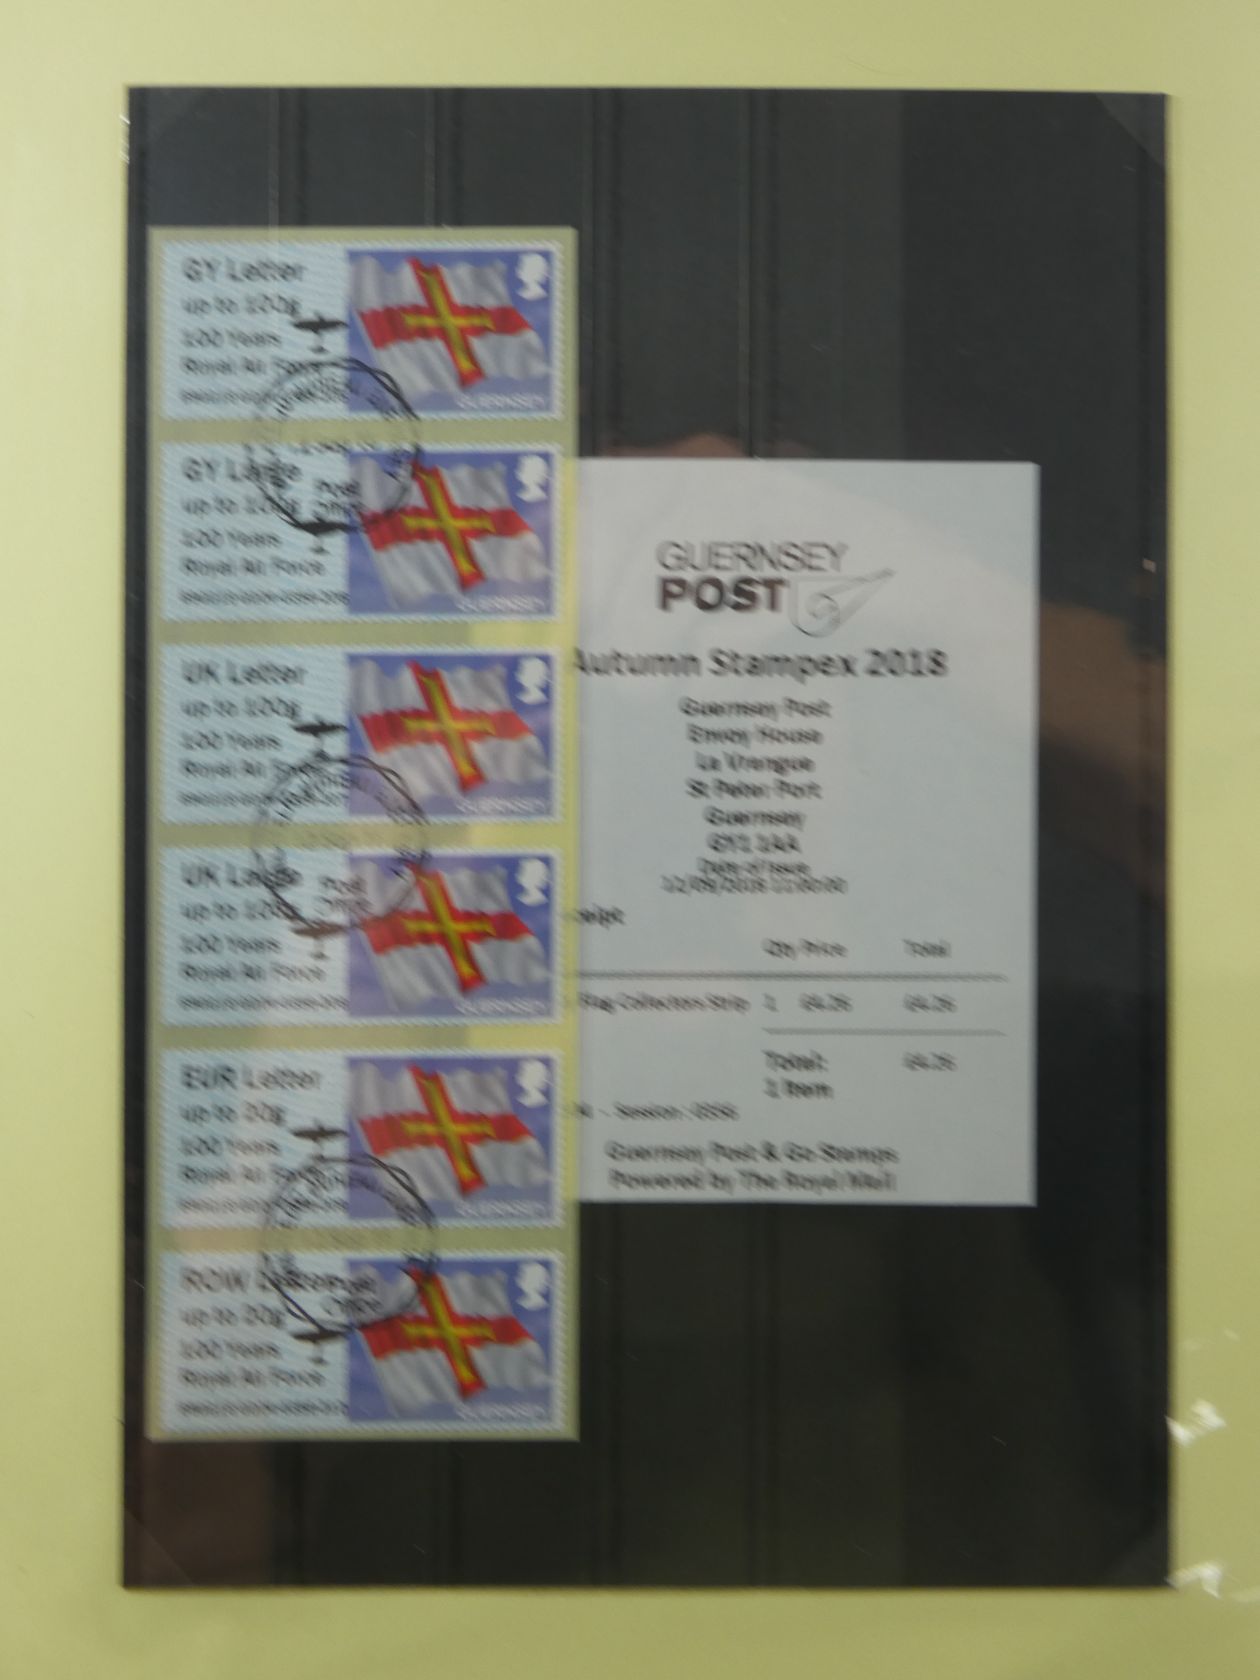 GY Letter
up to 100g
100 Years
Royal Air Force
GUERNSEY
GY Large
up to 100g
100 Years
Royal Air Force
GUERNSEY
Post
Office
UK Letter
up to 100g
100 Years
Royal Air Force
GUERNSEY
UK Large
up to 100g
100 Years
Royal Air Force
GUERNSEY
Post
Office
EUR Letter
up to 20g
100 Years
Royal Air Force
GUERNSEY
ROW Letter
up to 20g
100 Years
Royal Air Force
GUERNSEY
Post
Office
GUERNSEY
POST
Autumn Stampex 2018
Guernsey Post
Envoy House
La Vrangue
St Peter Port
Guernsey
GY1 1AA
Date of Issue
12/09/2018
ceipt
Qty Price Total
Flag Collectors Strip 1
Total:
1 Item
Session:
Guernsey Post & Go Stamps
Powered by The Royal Mail